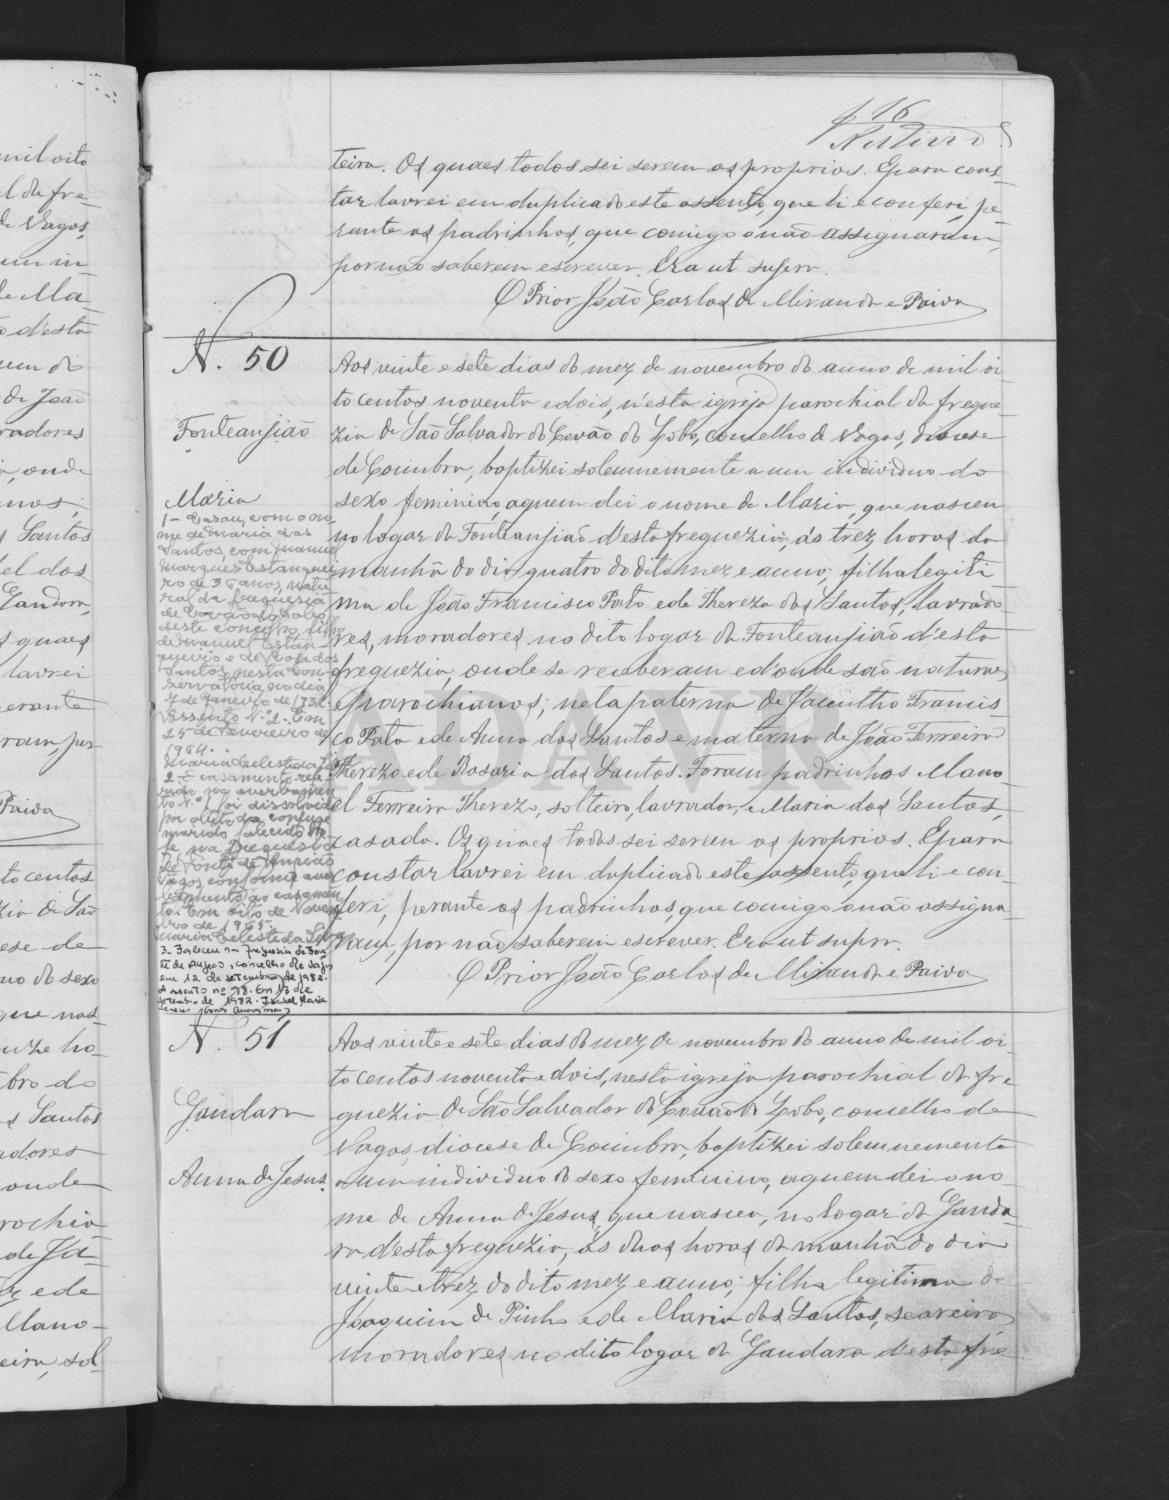 16
teira. Os quaes todos sei serem os proprios. E para cons-
tar lavrei em duplicado este assento, que li e conferi pe-
rante os padrinhos, que comigo o não assignaram,
por não saberem escrever. Era ut supra.
O Prior João Carlos de Miranda e Paiva
N. 50
Fonteanjião
Maria
Aos vinte e sete dias do mez de novembro do anno de mil oi-
to centos noventa e dois, n'esta igreja parochial da fregue-
zia de São Salvador do Covão do Lobo, concelho de Vagos, diocese
de Coimbra, baptizei solemnemente a um individuo do
sexo feminino, a quem dei o nome de Maria, que nasceu
no logar da Fonteanjião d'esta freguezia, ás trez horas da
manhã do dia quatro do dito mez e anno; filha legiti-
ma de João Francisco Pato e de Thereza dos Santos, lavrado-
res, moradores no dito logar da Fonteanjião d'esta
freguezia, onde se receberam e d'onde são naturaes
e parochianos; neta paterna de Jacintho Francis-
co Pato e de Anna dos Santos e materna de João Ferreira
Therezo e de Rosaria dos Santos. Foram padrinhos Mano-
el Ferreira Therezo, solteiro, lavrador, e Maria dos Santos,
casada. Os quaes todos sei serem os proprios. E para
constar lavrei em duplicado este assento, que li e con-
feri, perante os padrinhos, que comigo o não assigna-
ram, por não saberem escrever. Era ut supra.
O Prior João Carlos de Miranda e Paiva
1- Casou, com o no-
me de Maria dos
Santos, com Manuel
Marques Estanquei-
ro de 36 anos, natu-
ral da freguesia
de Covão do Lobo,
deste concelho, filho
de Manuel Estan-
queiro e de Rosa dos
Santos, nesta Con-
servatória, no dia
7 de Janeiro de 1932.
Assento Nº 2. Em
25 de Fevereiro de
1964.
Maria Celeste da
2- O casamento refe-
rido no averbamen-
to Nº 1 foi dissolvido
por óbito do conjuge
marido falecido
na freguesia
de Fonte de Angião
Vagos conforme aver-
bamento ao casamen-
to. Em oito de Novem-
bro de 1965.
Maria Celeste da
3- Faleceu na freguesia de Fon-
te de Angeão, concelho de Vagos
em 12 de setembro de 1982.
Assento nº 78. Em 13 de
setembro de 1982. Isabel Maria
ADAVR
N. 51
Gandara
Anna de Jesus.
Aos vinte e sete dias do mez de novembro do anno de mil oi-
to centos noventa e dois, nesta igreja parochial da fre-
guezia de São Salvador do Covão do Lobo, concelho de
Vagos, diocese de Coimbra, baptizei solemnemente
a um individuo do sexo feminino, a quem dei o no-
me de Anna de Jesus, que nasceu, no logar da Ganda-
ra d'esta freguezia, ás duas horas da manhã do dia
vinte e trez do dito mez e anno; filha legitima de
Joaquim de Pinho e de Maria dos Santos, seareiros
moradores no dito logar da Gandara d'esta fre-